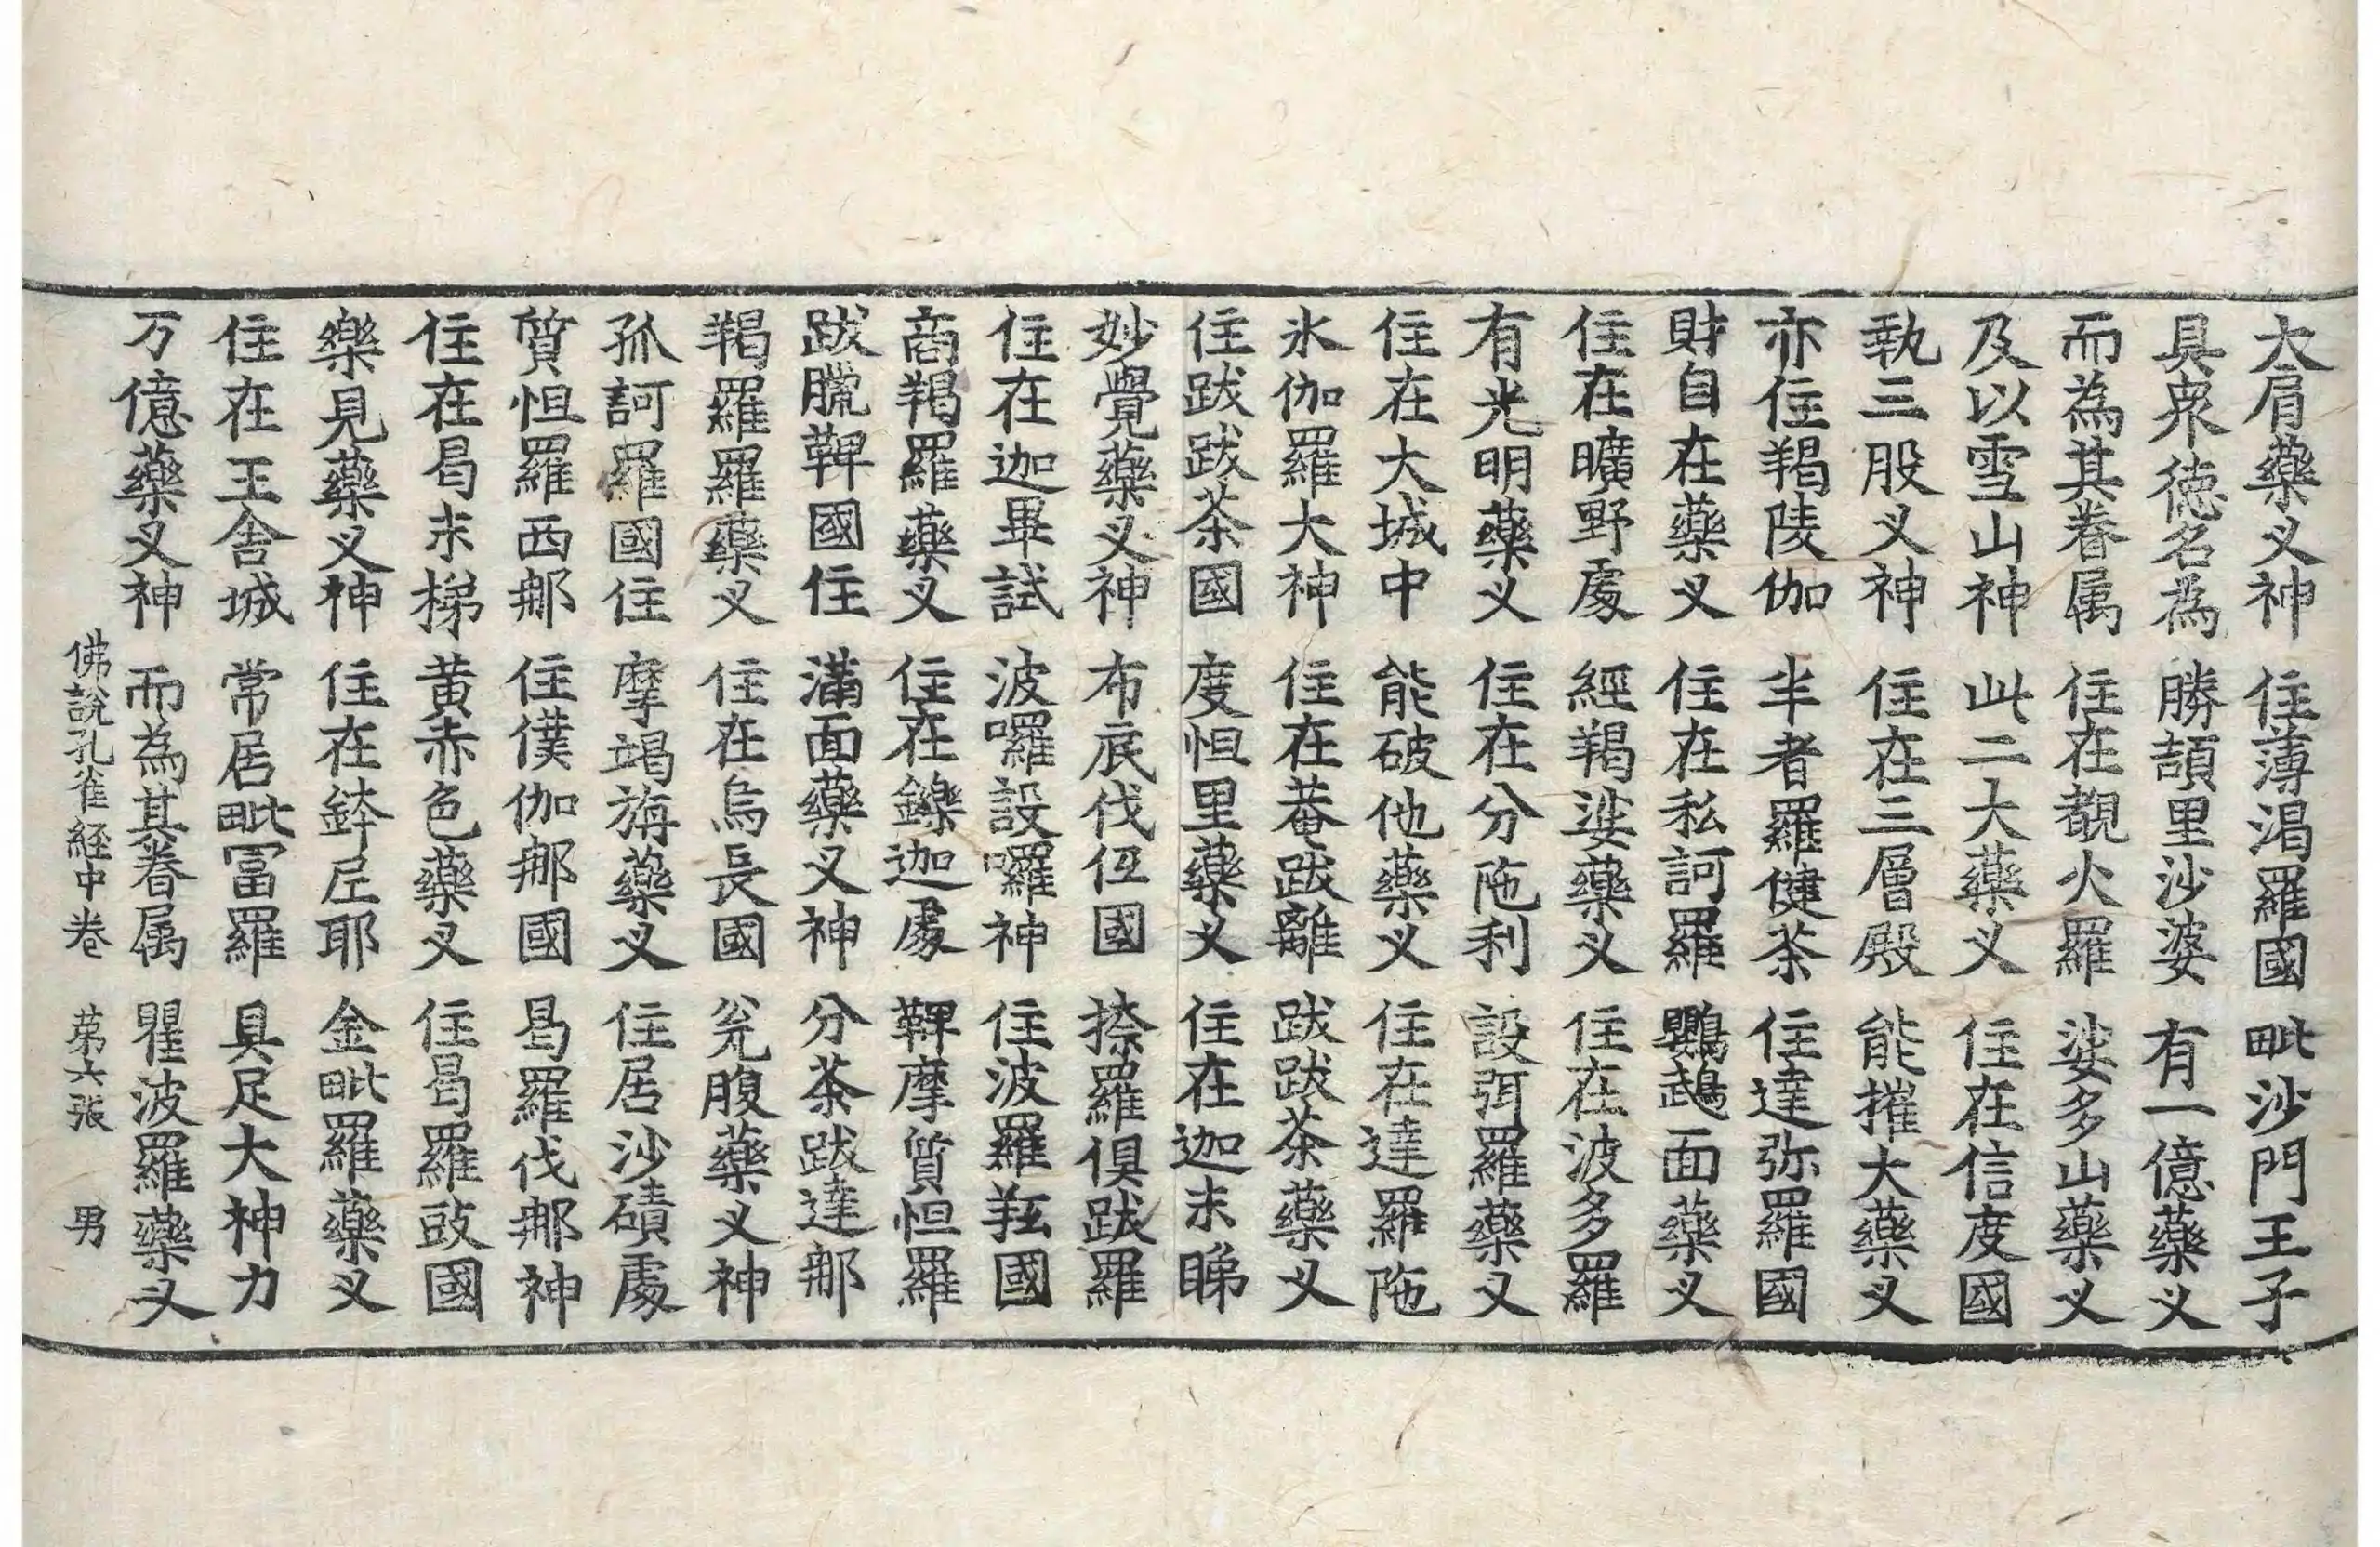 大肩藥叉神 住薄渴羅國 毗沙門王子
具衆徳名為 勝頡里沙婆 有一億藥叉
而為其眷属 住在覩火羅 娑多山藥叉
及以雪山神 此二大藥叉 住在信度國
執三股叉神 住在三層殿 能摧大藥叉
亦住羯陵伽 半者羅健荼 住達弥羅國
財自在藥叉 住在私訶羅 鸚鵡面藥叉
住在曠野處 經羯娑藥叉 住在波多羅
有光明藥叉 住在分陁利 設弭羅藥叉
住在大城中 能破他藥叉 住在達羅陁
氷伽羅大神 住在菴跋離 跋跋茶藥叉
住跋跋茶國 度怛里藥叉 住在迦末睇
妙覺藥叉神 布底伐伹國 捺羅俱跋羅
住在迦畢試 波囉設囉神 住波羅羝國
商羯羅藥叉 住在鑠迦處 鞞摩質怛羅
跋臘鞞國住 滿面藥叉神 分茶跋達那
羯羅羅藥叉 住在烏長國 瓮腹藥叉神
孤訶羅國住 摩竭旃藥叉 住居沙磧處
質怛羅西那 住僕伽那國 曷羅伐那神
住在曷末梯 黄赤色藥叉 住曷羅豉國
樂見藥叉神 住在鉢𡱝耶 金毗羅藥叉
住在王舍城 常居毗冨羅 具足大神力
万億藥叉神 而為其眷属 瞿波羅藥叉
佛說孔雀経中卷 苐六張 男